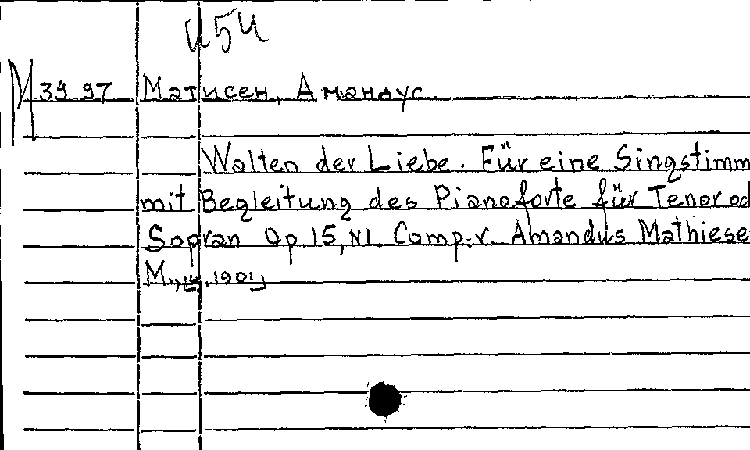 454
М 3997 Матисен, Амандус.
Walten der Liebe. Für eine Singstimm
mit Begleitung des Pianoforte für Tenor od
Sopran Op 15, N1. Comp. v. Amandus Mathiese
М., 1901